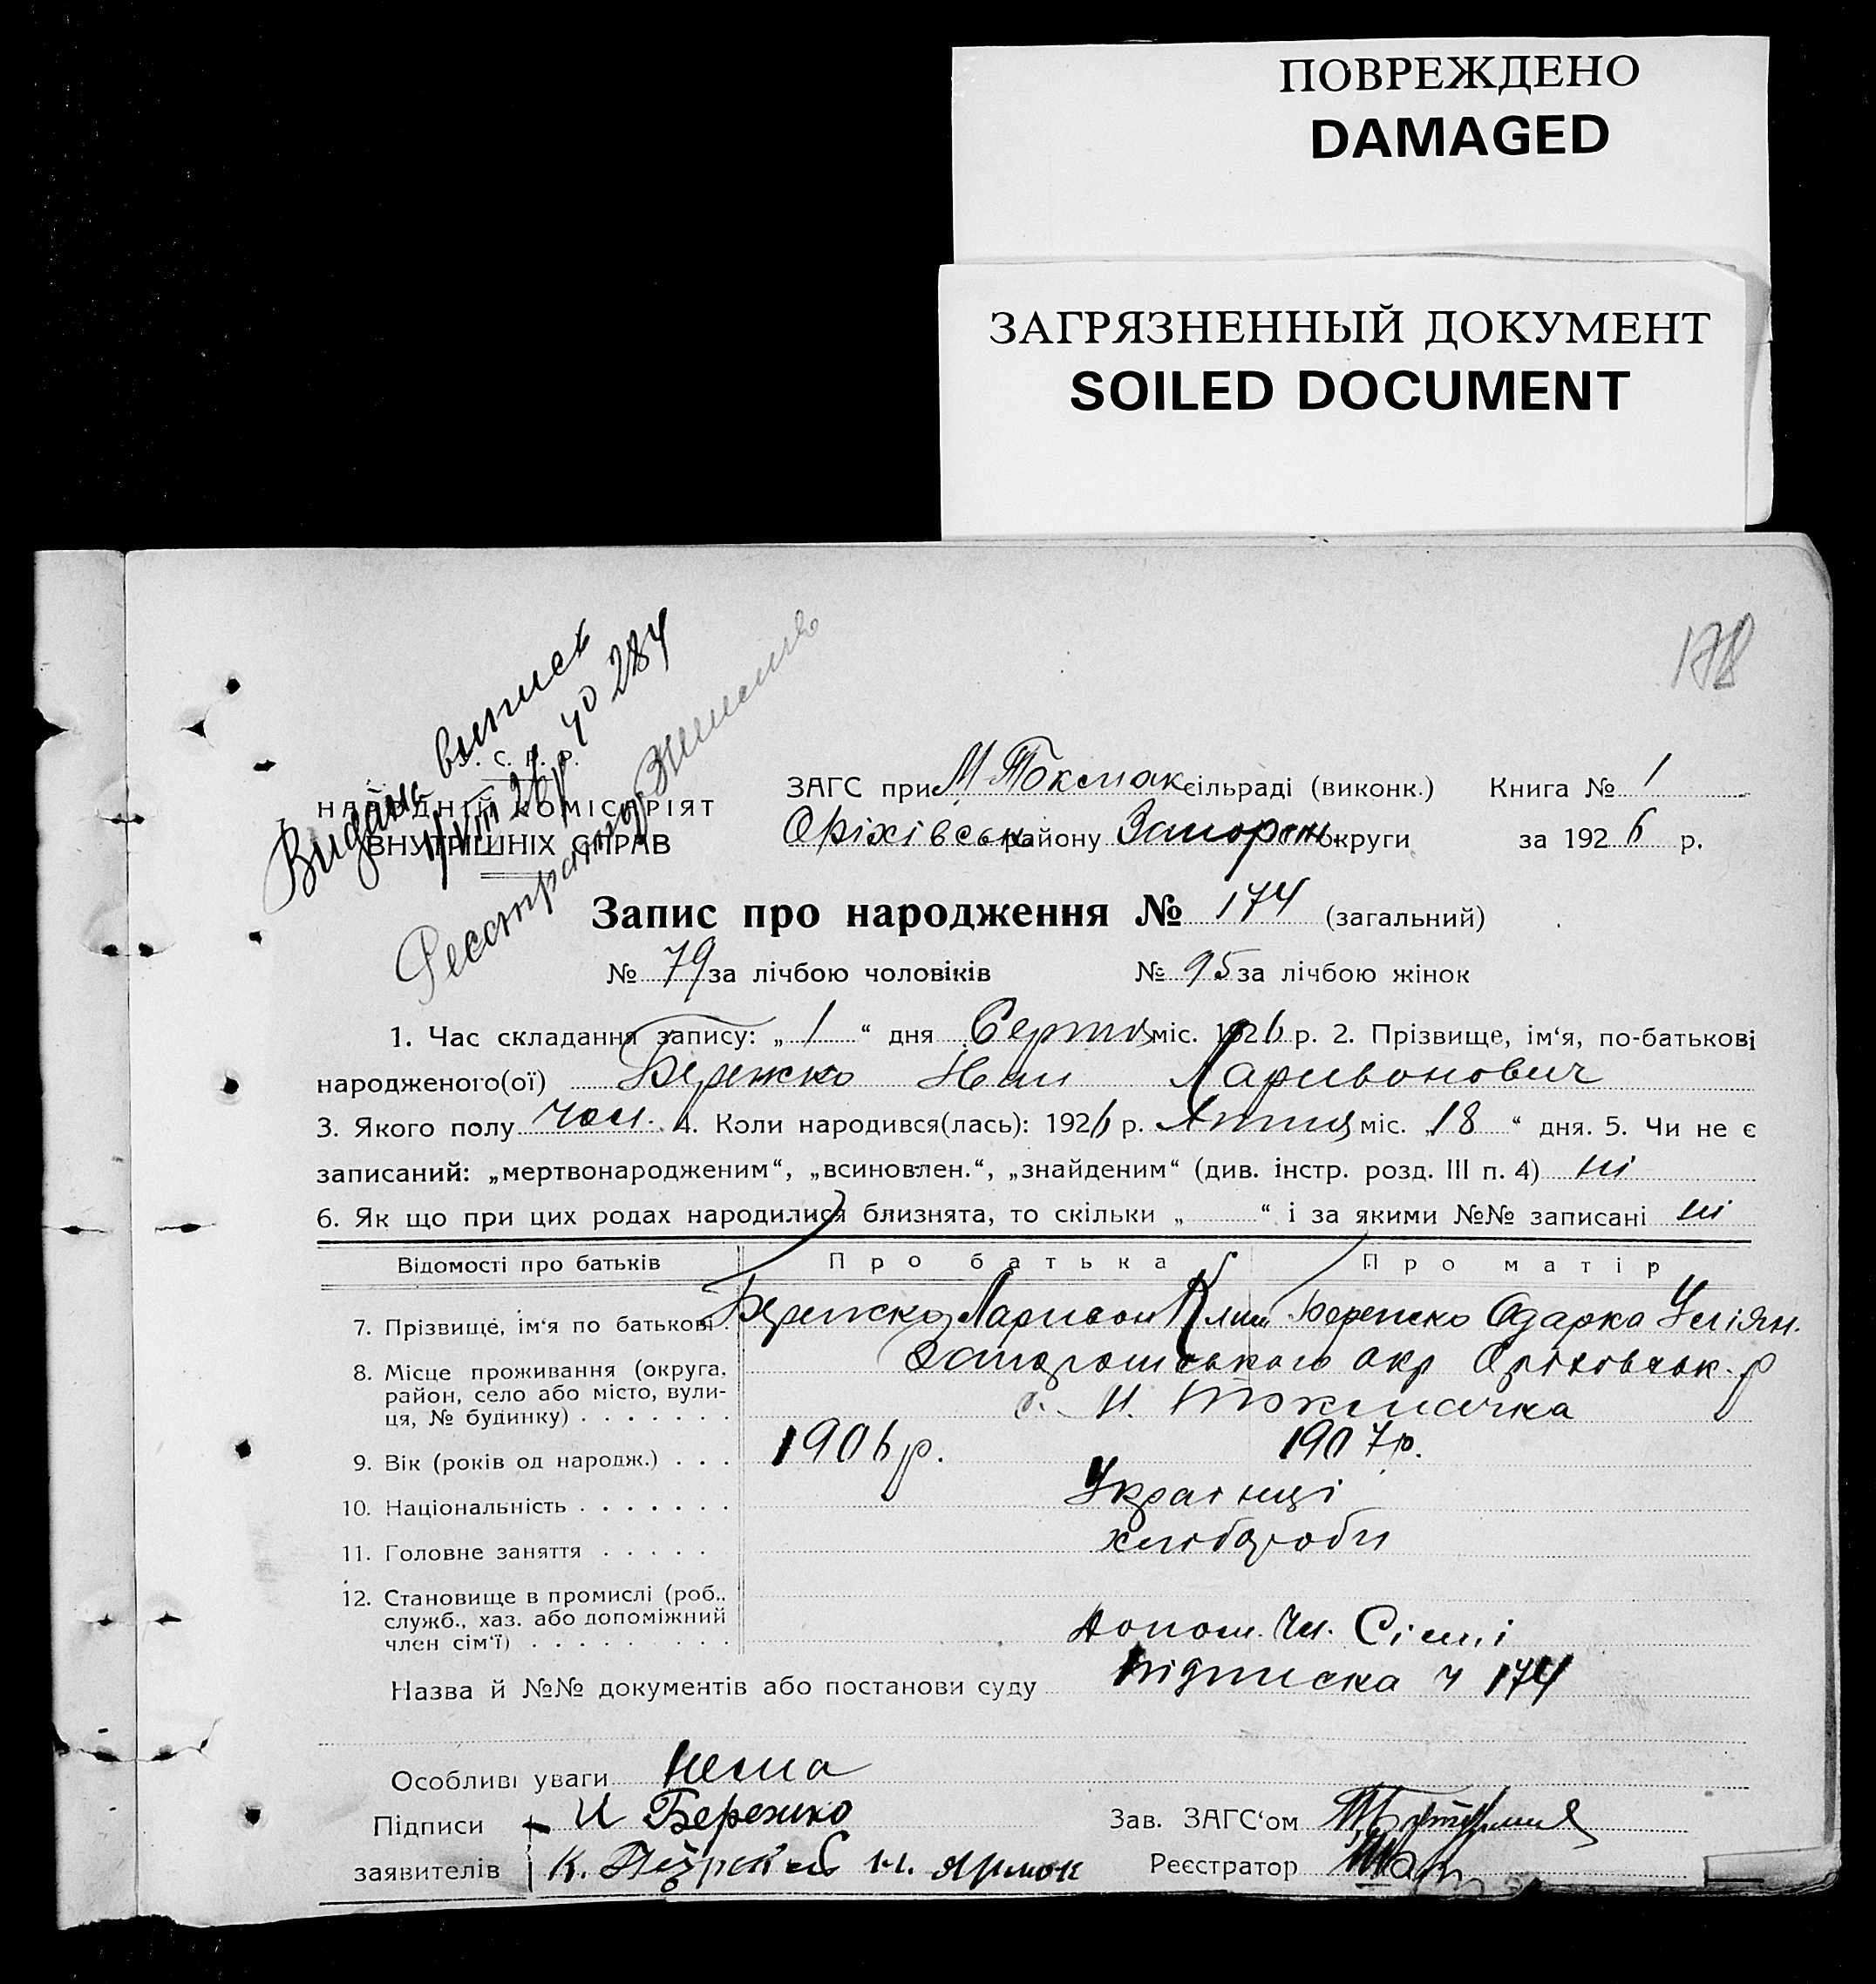 ПОВРЕЖДЕНО
DAMAGED
ЗАГРЯЗНЕННЫЙ ДОКУМЕНТ
SOILED DOCUMENT
178
Видано выпись
40 284
С. Р. Р.
НАРОДНІЙ КОМІСАРІЯТ
ВНУТРІШНІХ СПРАВ
ЗАГС при М Токмак сільраді (виконк.) Книга № 1
Оріхівськ району Запорож. округи за 1926 р.
Запис про народження № 174 (загальний)
№ 79 за лічбою чоловіків № 95 за лічбою жінок
1. Час складання запису: „ 1 “ дня Серпня міс. 1926 р. 2. Прізвище, ім'я, по-батькові
народженого(ої) Бережко Іван Ларивонович
3. Якого полу чол. 4. Коли народився(лась): 1926 р. Липня міс. „18“ дня. 5. Чи не є
записаний: „мертвонародженим“, „всиновлен.“, „знайденим“ (див. інстр. розд. III п. 4) ні
6. Як що при цих родах народилися близнята, то скільки „ “ і за якими №№ записані ні
Відомості про батьків Про батька Про матір
7. Прізвище, ім'я по батькові . Бережко Ларивон Клим Бережко Одарка Уліян.
8. Місце проживання (округа, район, село або місто, вулиця, № будинку) . . . . . . . Запорошського окр Оріховськ. р
с. М. Токмачка
9. Вік (років од народж.) . . . 1906 р. 1907 р.
10. Національність . . . . . . . Українці
11. Головне заняття . . . . . хлібороби
12. Становище в промислі (роб., служб., хаз. або допоміжний член сім'ї) . . . . . . . . . Допом. Чл. Сімі
Назва й №№ документів або постанови суду підписка ч 174
Особливі уваги Нема
Підписи И Бережко Зав. ЗАГС'ом
заявителів К. Реєстратор